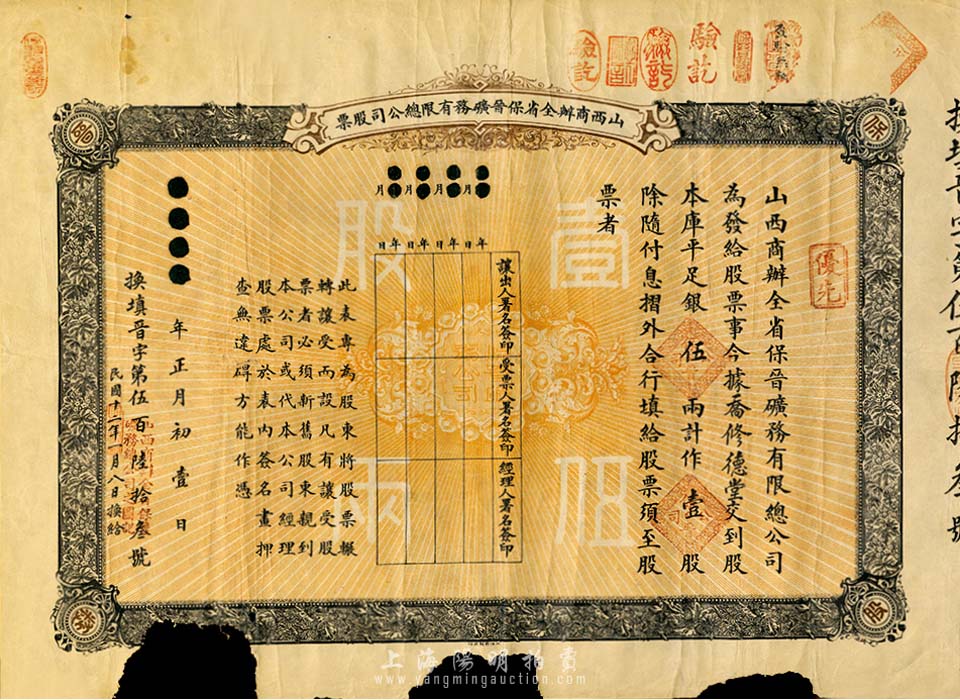 山西商辦全省保晉礦務有限總公司股票
保
晉
股
票
驗訖
驗訖
優先
山西商辦全省保晉礦務有限總公司
為發給股票事今據喬修德堂交到股
本庫平足銀伍兩計作壹股
除隨付息摺外合行填給股票須至股
票者
壹股
伍兩
月 月 月 月
年 日 年 日 年 日 年 日
讓出人署名簽印
受票人署名簽印
經理人署名簽印
此表專為股東將股票輾
轉讓受而設凡有讓受股
票者必須新舊股東親到
本公司或代本公司經理
股票處於表內簽名畫押
查無違碍方能作憑
年正月初壹日
換填晉字第伍百陸拾叁號
民國十二年一月八日換給
上海陽明拍賣
www.yangmingauction.com